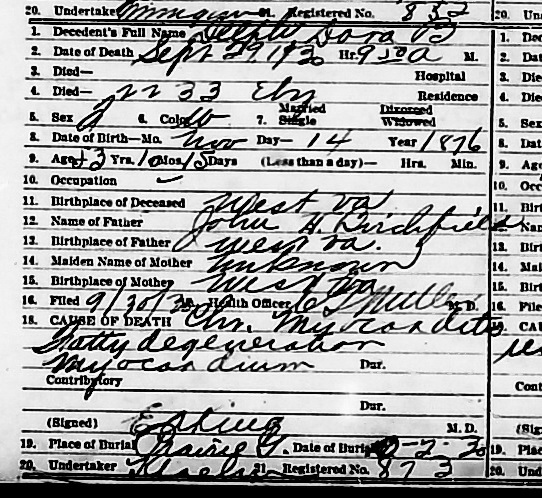 20. Undertaker 21. Registered No. 832 20. Un
1. Decedent's Full Name Dora B 1. Dec
2. Date of Death Sept 29, 1930 Hr. 9 50 a M. 2. Dat
3. Died— Hospital 3. Die
4. Died— 2233 Elm Residence 4. Die
5. Sex 6. Color W 7. Married Single Divorced Widowed 5. Sex
8. Date of Birth—Mo. Nov Day— 14 Year 1876 8. Da
9. Age 53 Yrs. 10 Mos. 15 Days (Less than a day)— Hrs. Min. 9. Ag
10. Occupation ✓ 10. Oc
11. Birthplace of Deceased West Va 11. Birt
12. Name of Father John H. Burchfield 12. Nan
13. Birthplace of Father West Va. 13. Birt
14. Maiden Name of Mother Unknown 14. Mai
15. Birthplace of Mother West Va 15. Birt
16. Filed 9/30/30 Health Officer M. D. 16. File
18. CAUSE OF DEATH Chr. Myocarditis CAU
Fatty degeneration
Myocardium Dur.
Contributory Cont
Dur.
(Signed) M. D. (Sig
19. Place of Burial Prairie G. Date of Burial 10-2-30 19. Plac
20. Undertaker 21. Registered No. 873 20. Und